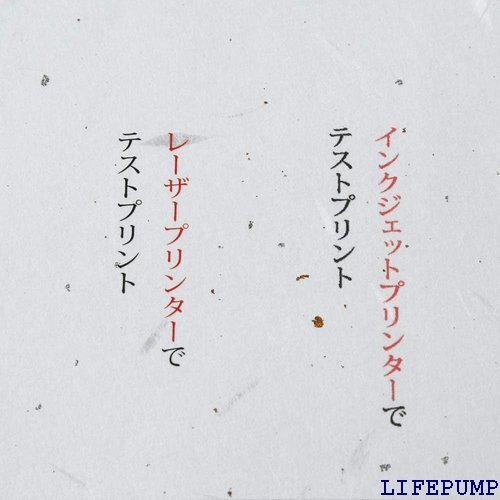 インクジェットプリンターで
テストプリント
レーザープリンターで
テストプリント
LIFEPUMP